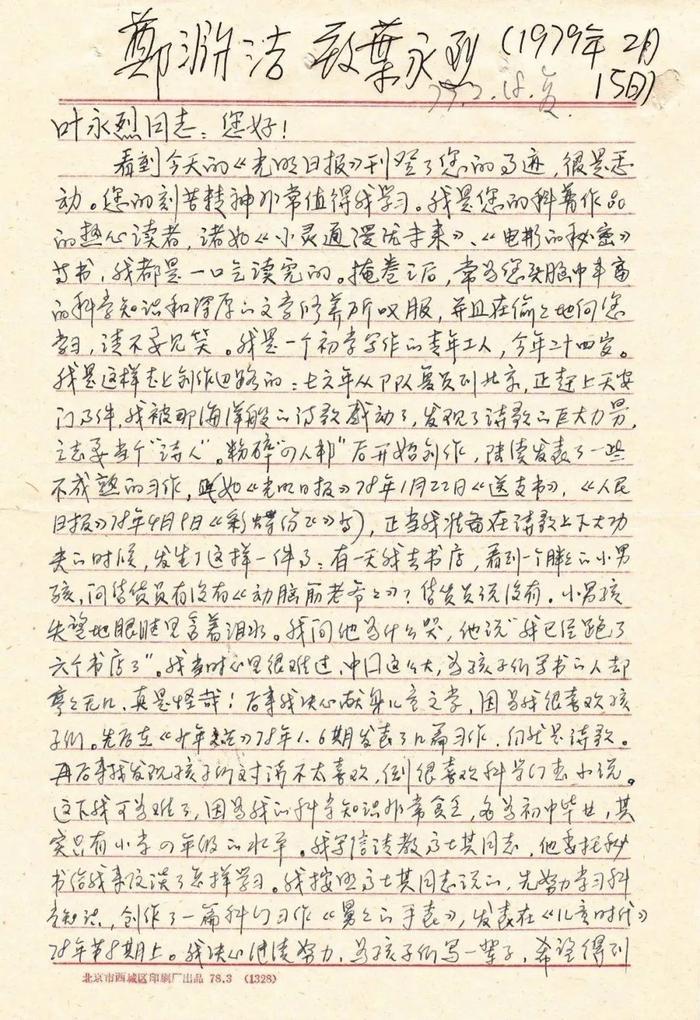 鄭淵洁致葉永烈（1979年2月
15日）
79.2.18.复
叶永烈同志：您好！
看到今天的《光明日报》刊登了您的事迹，很是感
动。您的刻苦精神非常值得我学习。我是您的科普作品
的热心读者，诸如《小灵通漫游未来》、《电影的秘密》
等书，我都是一口气读完的。掩卷之后，常为您头脑中丰富
的科学知识和深厚的文学修养所叹服，并且在偷偷地向您
学习，请不要见笑。我是一个初学写作的青年工人，今年二十四岁。
我是这样走上创作道路的：七六年从部队复员到北京，正赶上天安
门事件，我被那海洋般的诗歌感动了，发现了诗歌的巨大力量，
立志要当个“诗人”。粉碎“四人邦”后开始创作，陆续发表了一些
不成熟的习作，（如《光明日报》78年1月22日《送支书》，《人民
日报》78年4月9日《彩蝶纷飞》等），正当我准备在诗歌上下大功
夫的时候，发生了这样一件事：有一天我去书店，看到一个胖胖的小男
孩，问售货员有没有《动脑筋老爷爷》？售货员说没有。小男孩
失望地眼睛里含着泪水。我问他为什么哭，他说“我已经跑了
六个书店了”。我当时心里很难过，中国这么大，为孩子们写书的人却
寥寥无几，真是怪哉！后来我决心献身儿童文学，因为我很喜欢孩
子们。先后在《少年文艺》78年1.6期发表了几篇习作，仍就是诗歌。
再后来我发现孩子们对诗不太喜欢，倒很喜欢科学幻想小说。
这下我可为难了，因为我的科学知识非常贫乏，名为初中毕业，其
实只有小学四年级的水平。我写信请教高士其同志，他委托秘
书给我来信谈了怎样学习。我按照高士其同志说的，先努力学习科
学知识，创作了一篇科幻习作《舅舅的手表》，发表在《儿童时代》
78年第8期上。我决心继续努力，为孩子们写一辈子，希望得到
北京市西城区印刷厂出品 78.3 （1328）